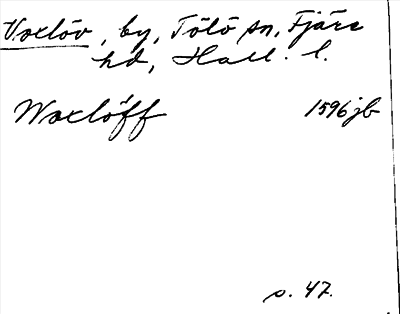 Voxlöv, by, Tölö sn, Fjäre
hd, Hall. l.
Woxlöff 1596 jb
s. 47.